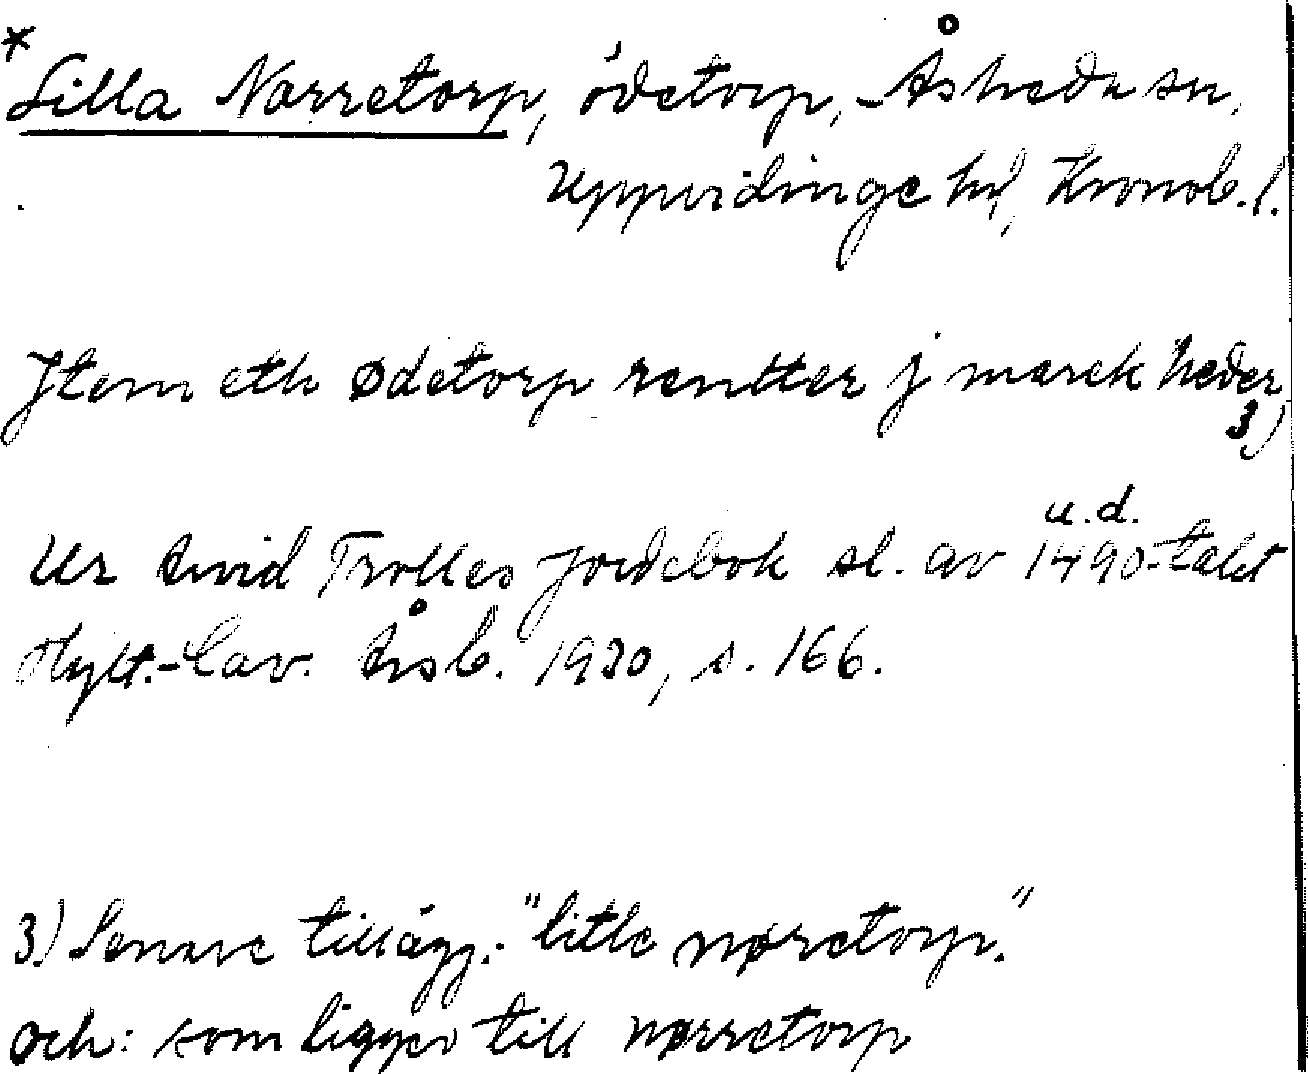 * Lilla Norretorp, ödetorp, Åsheda sn,
Uppvidinge hd, Kronob. l.
Jtem eth ødetorp rentter j marck heder 3)
Ur Arvid Trolles jordebok sl. av 1490-talet u.d.
Hylt.-Cav. Årsb. 1930, s. 166.
3) Senare tillägg: "litle nøretorp."
och: som ligger till nørretorp